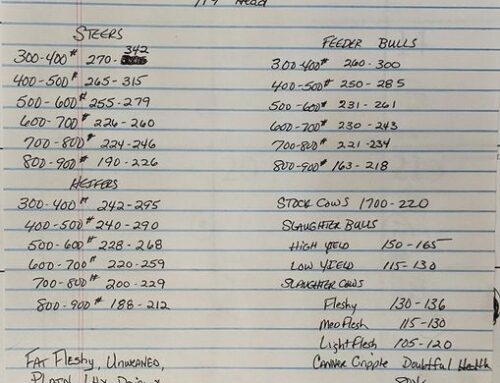 719 Head
STEERS
300-400# 270-342
400-500# 265-315
500-600# 255-279
600-700# 226-260
700-800# 224-246
800-900# 190-226
HEIFERS
300-400# 242-295
400-500# 240-290
500-600# 228-268
600-700# 220-259
700-800# 200-229
800-900# 188-212
FAT Fleshy, UNWEANED,
FEEDER BULLS
300-400# 260-300
400-500# 250-285
500-600# 231-261
600-700# 230-243
700-800# 221-234
800-900# 163-218
STOCK COWS 1700-220
SLAUGHTER BULLS
HIGH YIELD 150-165
LOW YIELD 115-130
SLAUGHTER COWS
Fleshy 130-136
Med Flesh 115-130
Light Flesh 105-120
CANNER Cripple Doubtful Health